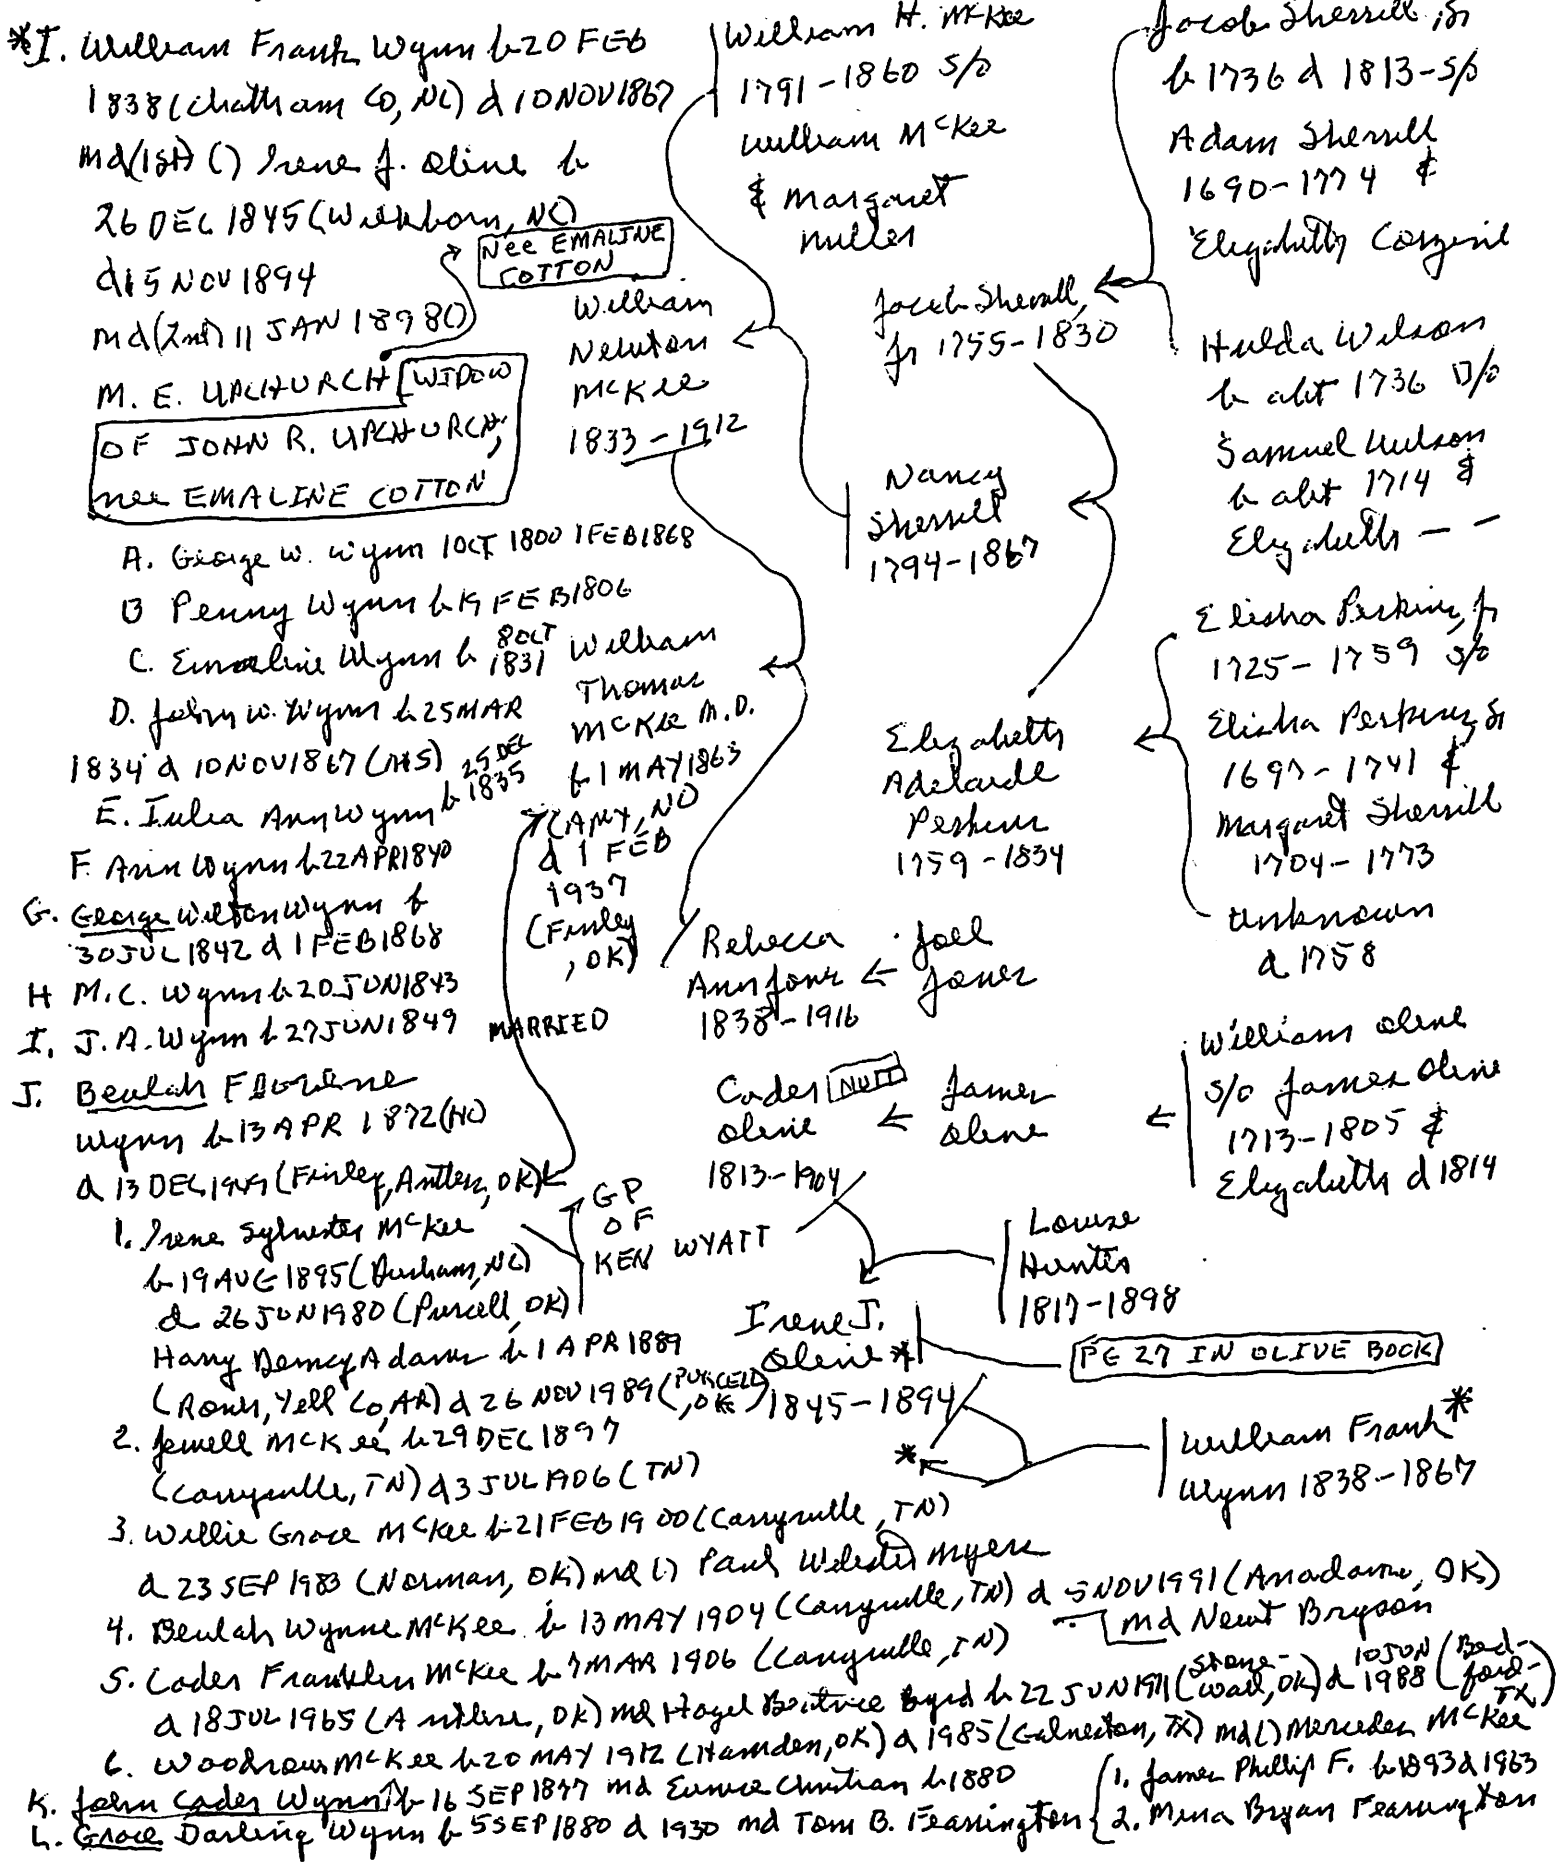 *I. William Frank Wynn b 20 FEB
1838 (Chatham CO, NC) d 10 NOV 1867
md (1st) () Irene J. Olive b
26 DEC 1845 (
, NC)
d 15 NOV 1894
md (2nd) 11 JAN 1898 ()
M. E. UPCHURCH [WIDOW
OF JOHN R. UPCHURCH,
nee EMALINE COTTON
Nee EMALINE
COTTON
A. George W. Wynn 1 OCT 1800 1 FEB 1868
B Penny Wynn b 19 FEB 1806
C. Emaline Wynn b 8 OCT
1831
D. John W. Wynn b 25 MAR
1834 d 10 NOV 1867 (MS)
E. Julia Ann Wynn b 25 DEC
1835
F. Ann Wynn b 22 APR 1840
G. George Wilton Wynn b
30 JUL 1842 d 1 FEB 1868
H M.C. Wynn b 20 JUN 1843
I. J. A. Wynn b 27 JUN 1849
J. Beulah Florene
Wynn b 13 APR 1872 (NC)
d 13 DEC (Finley, Antlers, OK)
1. Irene Sylvester McKee
b 19 AUG 1895 (Durham, NC)
d 26 JUN 1980 (Purcell, OK)
Harry Demcy Adams b 1 APR 1889
(Rover, Yell Co, AR) d 26 NOV 1989 (PURCELL
, OK)
2. Jewell McKee b 29 DEC 1897
(Carryville, TN) d 3 JUL 1906 (TN)
3. Willie Grace McKee b 21 FEB 1900 (Carryville, TN)
d 23 SEP 1983 (Norman, OK) md () Paul Webster Myers
4. Beulah Wynne McKee b 13 MAY 1904 (Carryville, TN) d 5 NOV 1991 (Anadarko, OK)
md Newt Bryson
5. Cader Franklin McKee b 7 MAR 1906 (Carryville, TN)
d 18 JUL 1965 (Antlers, OK) md Hazel Beatrice Byrd b 22 JUN 1911 (Stone-
wall, OK) d 10 JUN
1988 (Bed-
ford-
TX)
6. Woodrow McKee b 20 MAY 1912 (Hamden, OK) d 1985 (Galveston, TX) md () Mercedes McKee
K. John Cader Wynn b 16 SEP 1877 md Eunice Christian b 1880
L. Grace Darling Wynn b 5 SEP 1880 d 1930 md Tom B. Fearrington
1. James Phillip F. b 1893 d 1963
2. Mina Bryan Fearrington
William H. McKee
1791-1860 s/o
William McKee
& Margaret
Miller
William
Newton
McKee
1833-1912
William
Thomas
McKee M.D.
b 1 MAY 1863
(
, NC)
d 1 FEB
1937
(Finley
, OK)
MARRIED
GP
OF
KEN WYATT
Jacob Sherrill, Sr
b 1736 d 1813 - s/o
Adam Sherrill
1690-1774 &
Elizabeth
Jacob Sherrill,
Jr 1755-1830
Hulda Wilson
b abt 1736 D/o
Samuel Wilson
b abt 1714 &
Elizabeth - -
Nancy
Sherrill
1794-1867
Elisha Perkins, Jr
1725-1759 s/o
Elisha Perkins, Sr
1697-1741 &
Margaret Sherrill
1704-1773
Unknown
d 1758
Elizabeth
Adelaide
Perkins
1759-1834
Rebecca
Ann Jones
1838-1916
Joel
Jones
Cader [NUTT]
Olive
1813-1904
James
Olive
William Olive
s/o James Olive
1713-1805 &
Elizabeth d 1814
Louise
Hunter
1817-1898
Irene J.
Olive *
1845-1894
PG 27 IN OLIVE BOOK
*
William Frank *
Wynn 1838-1867